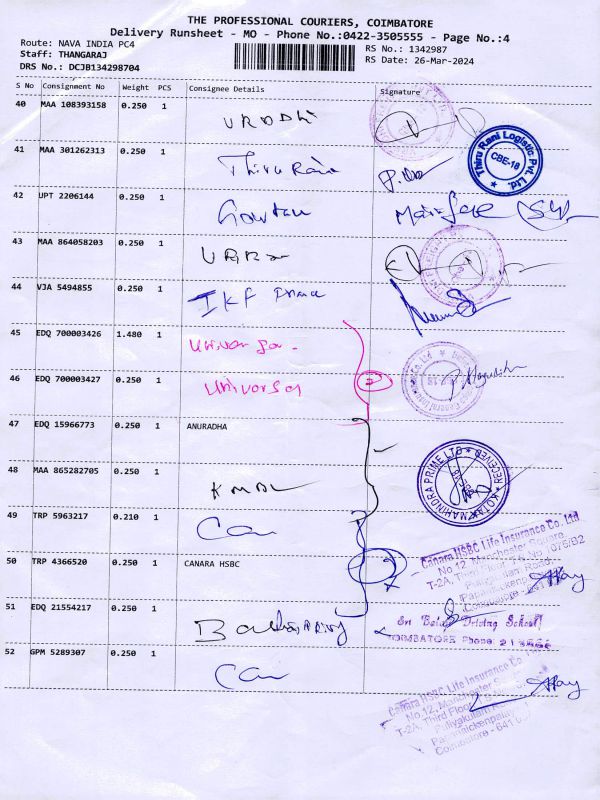 THE PROFESSIONAL COURIERS, COIMBATORE
Delivery Runsheet - MO - Phone No.:0422-3505555 - Page No.:4
Route: NAVA INDIA PC4
Staff: THANGARAJ
DRS No.: DCJB134298704
RS No.: 1342987
RS Date: 26-Mar-2024
S No Consignment No Weight PCS Consignee Details Signature
40 MAA 108393158 0.250 1
41 MAA 301262313 0.250 1 Thiru Rani
Thiru Rani Logistic Pvt. Ltd.
CBE-18
42 UPT 2206144 0.250 1 Gowtam
43 MAA 864058203 0.250 1
44 VJA 5494855 0.250 1 IKF
45 EDQ 700003426 1.480 1
46 EDQ 700003427 0.250 1 Universal
47 EDQ 15966773 0.250 1 ANURADHA
48 MAA 865282705 0.250 1 KMBL
KOTAK MAHINDRA PRIME LTD
RECEIVED
49 TRP 5963217 0.210 1 Can
Canara HSBC Life Insurance Co. Ltd
No.12, Manchester Square
50 TRP 4366520 0.250 1 CANARA HSBC
51 EDQ 21554217 0.250 1
Driving School
COIMBATORE Phone:
52 GPM 5289307 0.250 1 Can
Canara HSBC Life Insurance Co
No.12, Manchester
T-2A, Third Floor
Puliyakulam
Coimbatore - 641